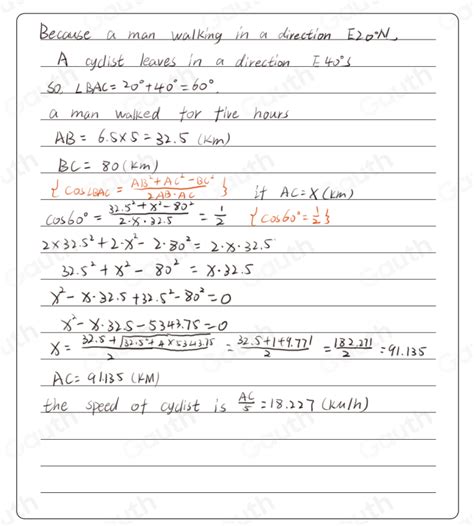 Because a man walking in a direction E20°N,
A cyclist leaves in a direction E40°S
So, ∠BAC=20°+40°=60°.
a man walked for five hours
AB = 6.5×5=32.5 (km)
BC = 80 (km)
{ cos∠BAC = (AB²+AC²-BC²)/(2AB·AC) } if AC=X (km)
cos60° = (32.5²+X²-80²)/(2·X·32.5) = 1/2 { cos60°=1/2 }
2×32.5²+2·X²-2·80²=2·X·32.5
32.5²+X²-80²=X·32.5
X²-X·32.5+32.5²-80²=0
X²-X·32.5-5343.75=0
X= (32.5+√(32.5²+4×5343.75))/2 = (32.5+149.771)/2 = 182.271/2 =91.135
AC=91.135 (KM)
the speed of cyclist is AC/5=18.227 (km/h)
Gauth